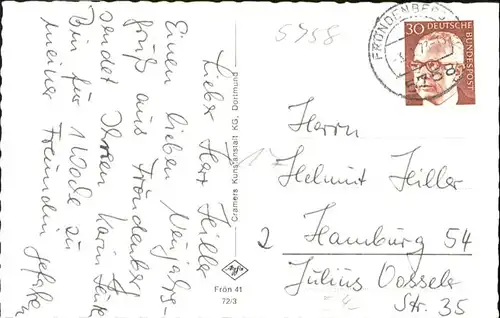 Lieber Herr Heiller
Einen lieben Neujahrs-
gruß aus Fröndenberg
sendet Ihnen Karin
Bin für 1 Woche zu
meiner Freundin gefahren
Cramers Kunstanstalt KG, Dortmund
Agfa
Frön 41
72/3
5758
FRÖNDENBERG
5758
30 DEUTSCHE
BUNDESPOST
Herrn
Helmut Heiller
2 Hamburg 54
Julius Vossele
Str. 35